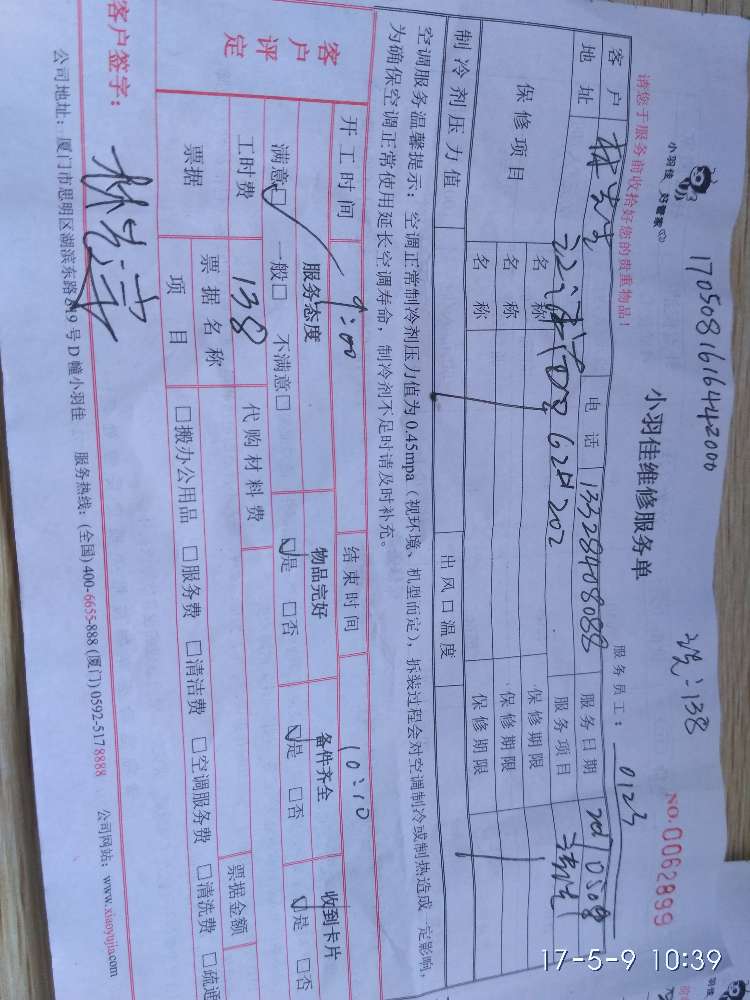 1705081616442000
洗:138
小羽佳 好管家
小羽佳维修服务单
NO.0062899
请您于服务前收拾好您的贵重物品!
服务员工: 0123
客户 林先生 电话 13328408088 服务日期
地址 服务项目
保修项目 名称 保修期限
名称 保修期限
名称 保修期限
制冷剂压力值 出风口温度
空调服务温馨提示:空调正常制冷剂压力值为0.45mpa(视环境、机型而定),拆装过程会对空调制冷或制热造成一定影响,
为确保空调正常使用延长空调寿命,制冷剂不足时请及时补充。
开工时间 9:00 结束时间 10:10
客户评定 服务态度 物品完好 备件齐全 收到卡片
满意□ 一般□ 不满意□ □是 □否 □是 □否 □是 □否
工时费 138 代购材料费
票据 票据名称 票据金额
项目 □搬办公用品 □服务费 □清洁费 □空调服务费 □清洗费 □疏通
客户签字:
公司地址:厦门市思明区湖滨东路819号D幢小羽佳 服务热线:(全国)400-6655-888 (厦门)0592-5178888 公司网站:www.xiaoyujia.com
17-5-9 10:39